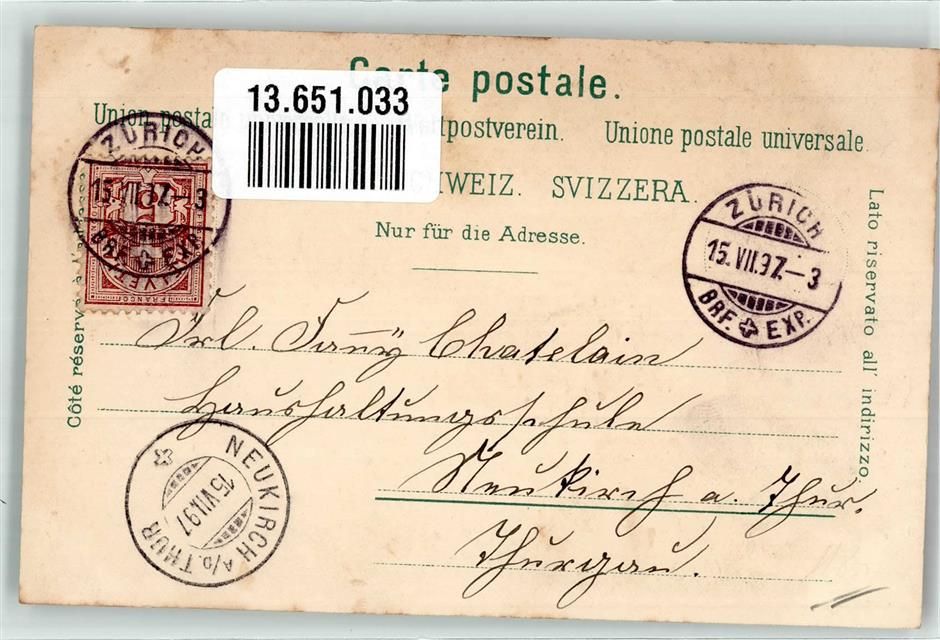 Carte postale.
13.651.033
Union postale tpostverein. Unione postale universale.
HWEIZ. SVIZZERA.
Nur für die Adresse.
ZÜRICH
15.VII.97.-3
BRF. EXP.
FRANCO
ZÜRICH
15.VII.97.-3
BRF. EXP.
Côté réservé
Lato riservato all' indirizzo.
Frl. Fanÿ Chatelain
Haushaltungsschule
Neukirch a. Thur.
Thurgau.
NEUKIRCH A/D. THUR
15.VII.97